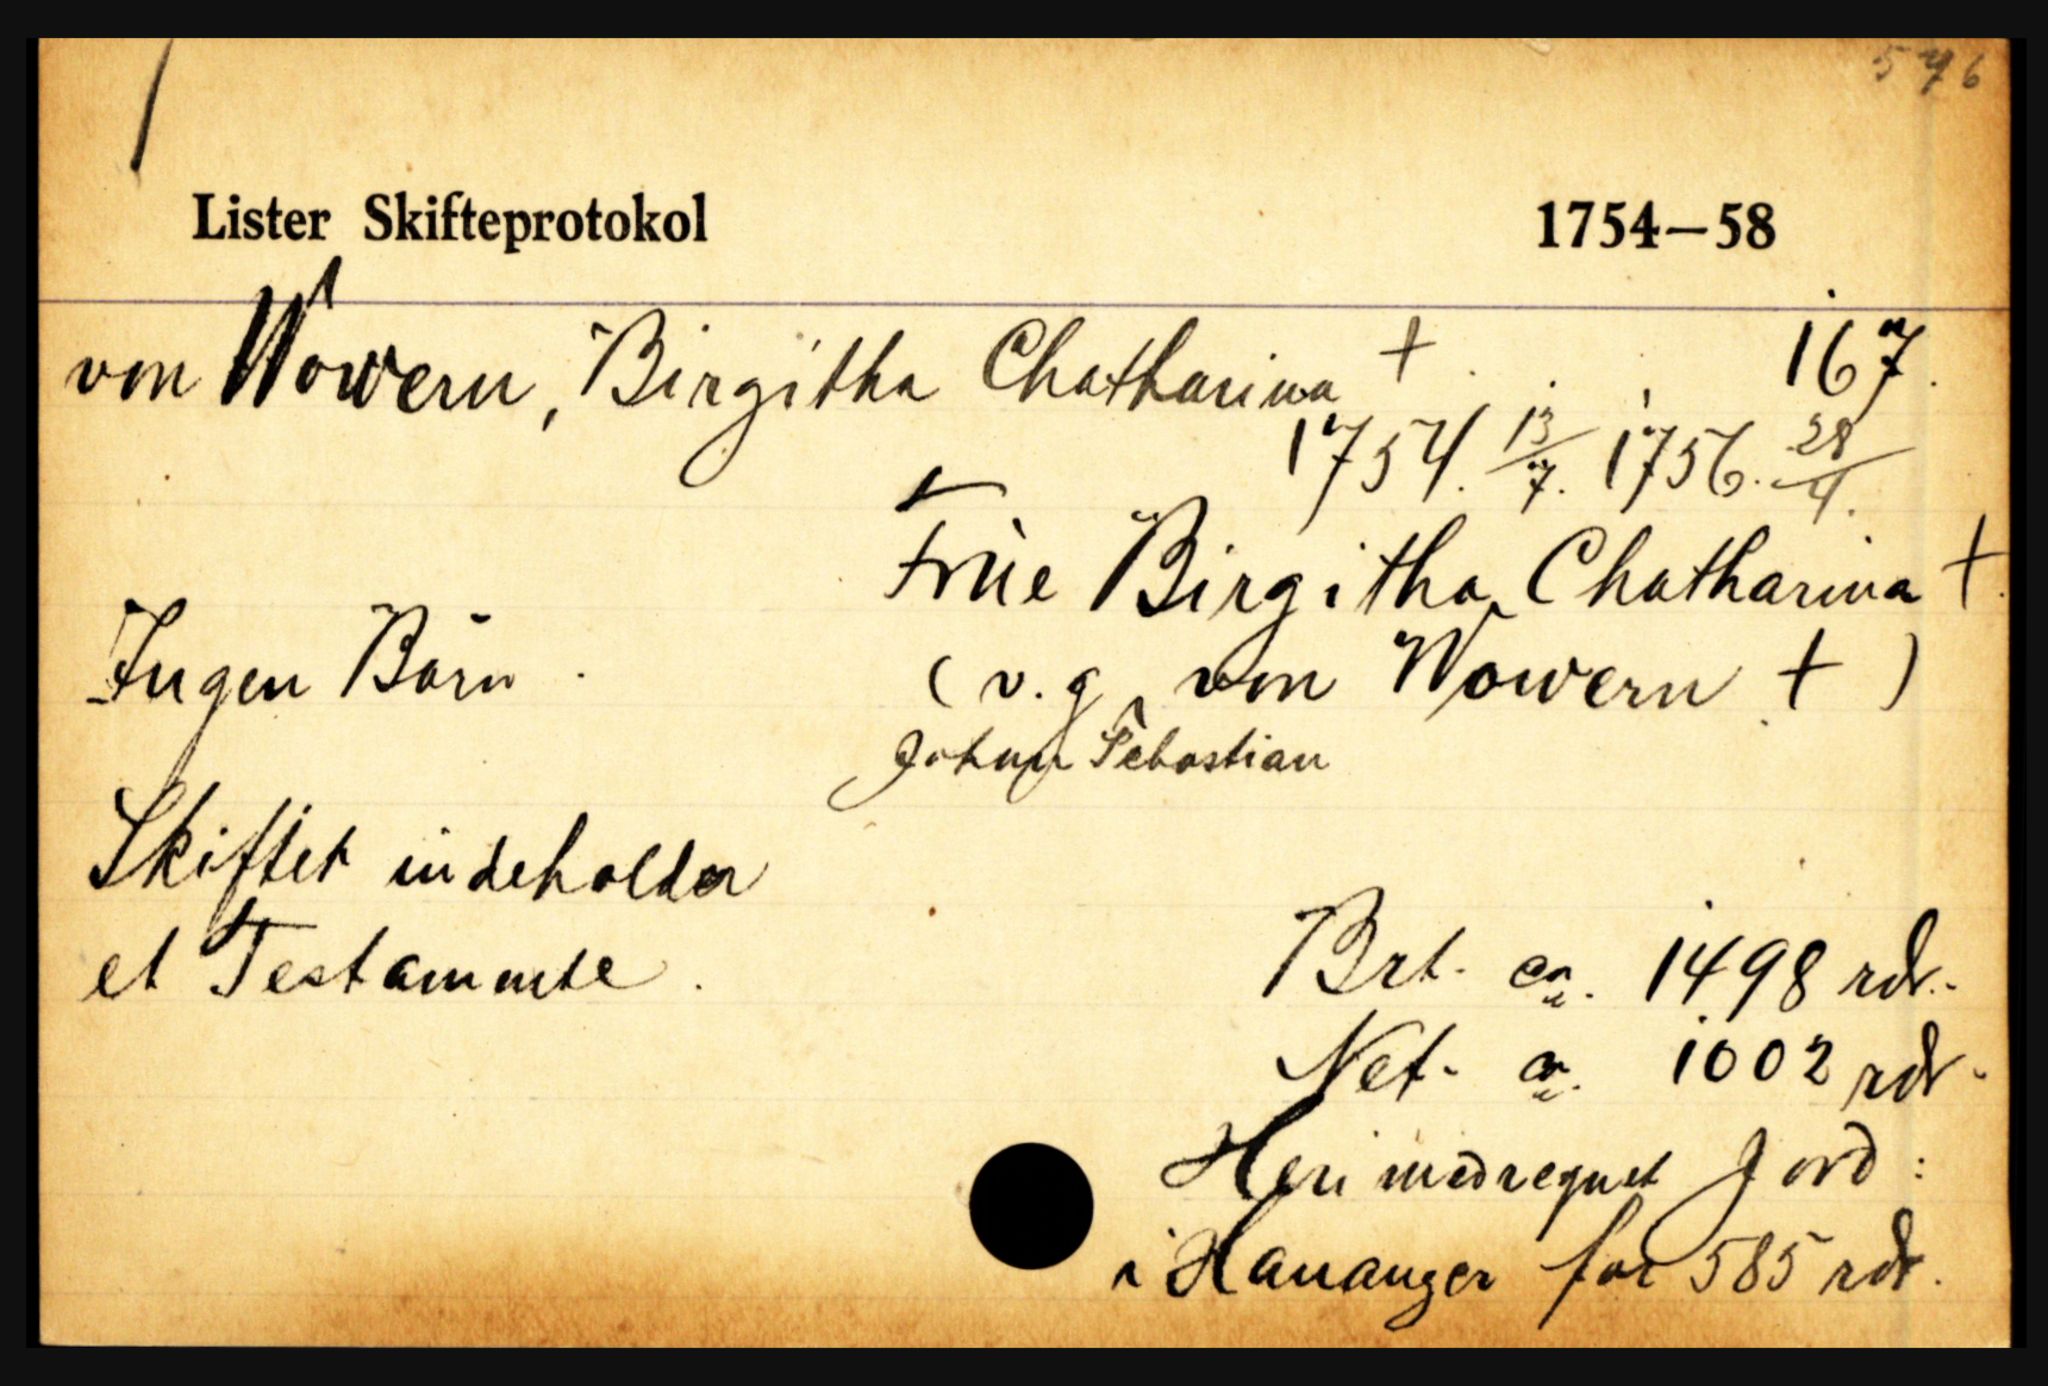 576
Lister Skifteprotokol 1754—58
von Wowern, Birgitha Chatharina † 167.
1754. 13/7. 1756. 28/4.
Frue Birgitha Chatharina †.
Ingen Børn. (v. g. von Wowern †)
Johan Sebastian
Skiftet indeholder
et Testamente. Brt. ca. 1498 rdr.
Net. ca. 1002 rdr.
Heri medregnet Jord:
i Hananger for 585 rdr.